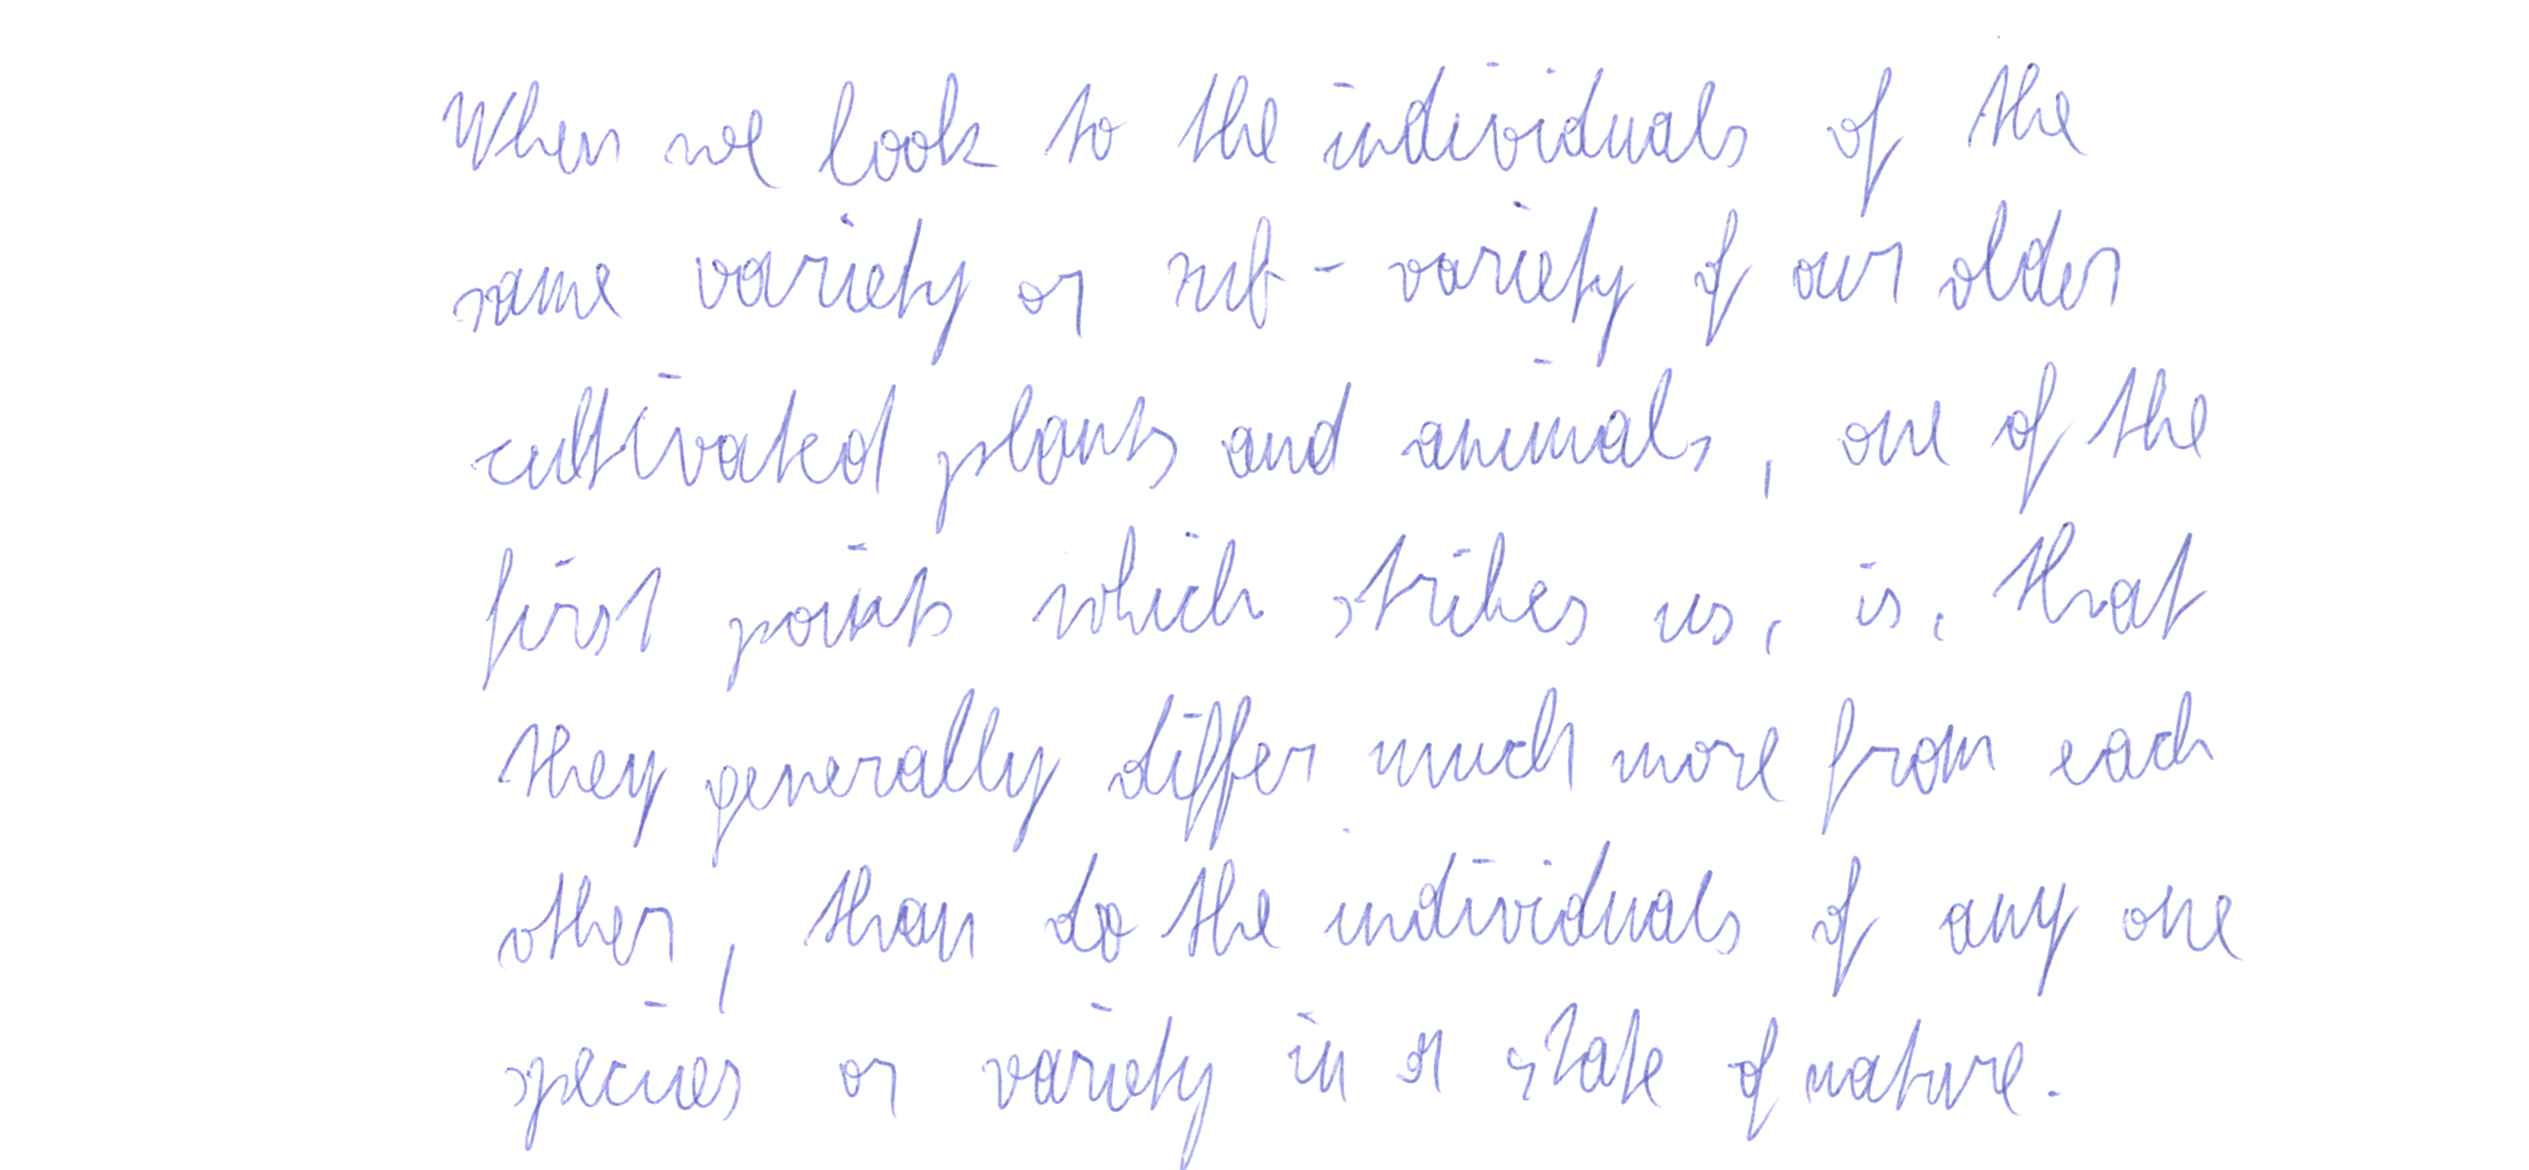 When we look to the individuals of the
same variety or sub-variety of our older
cultivated plants and animals, one of the
first points which strikes us, is, that
they generally differ much more from each
other, than do the individuals of any one
species or variety in a state of nature.